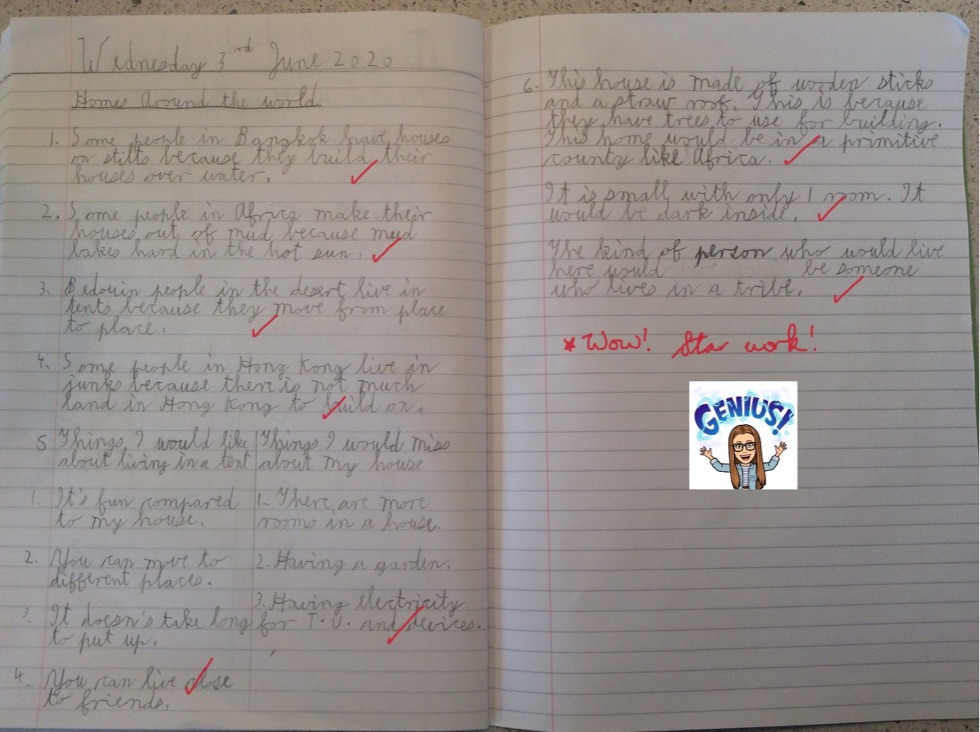 Wednesday 3rd June 2020
Homes Around the world
1. Some people in Bangkok have houses
on stilts because they build their
houses over water.
2. Some people in Africa make their
houses out of mud because mud
bakes hard in the hot sun.
3. Bedouin people in the desert live in
tents because they move from place
to place.
4. Some people in Hong Kong live in
junks because there is not much
land in Hong Kong to build on.
5 Things I would like
about living in a tent
1. It's fun compared
to my house.
2. You can move to
different places.
3. It doesn's take long
to put up.
4. You can live close
to friends.
Things I would miss
about my house
1. There are more
rooms in a house.
2. Having a garden.
3. Having electricity
for T.V. and devices.
6. This house is made of wooden sticks
and a straw roof. This is because
they have trees to use for building.
This home would be in a primitive
county like Africa.
It is small with only 1 room. It
would be dark inside.
The kind of person who would live
here would be someone
who lives in a tribe.
* Wow! Star work!
GENIUS!